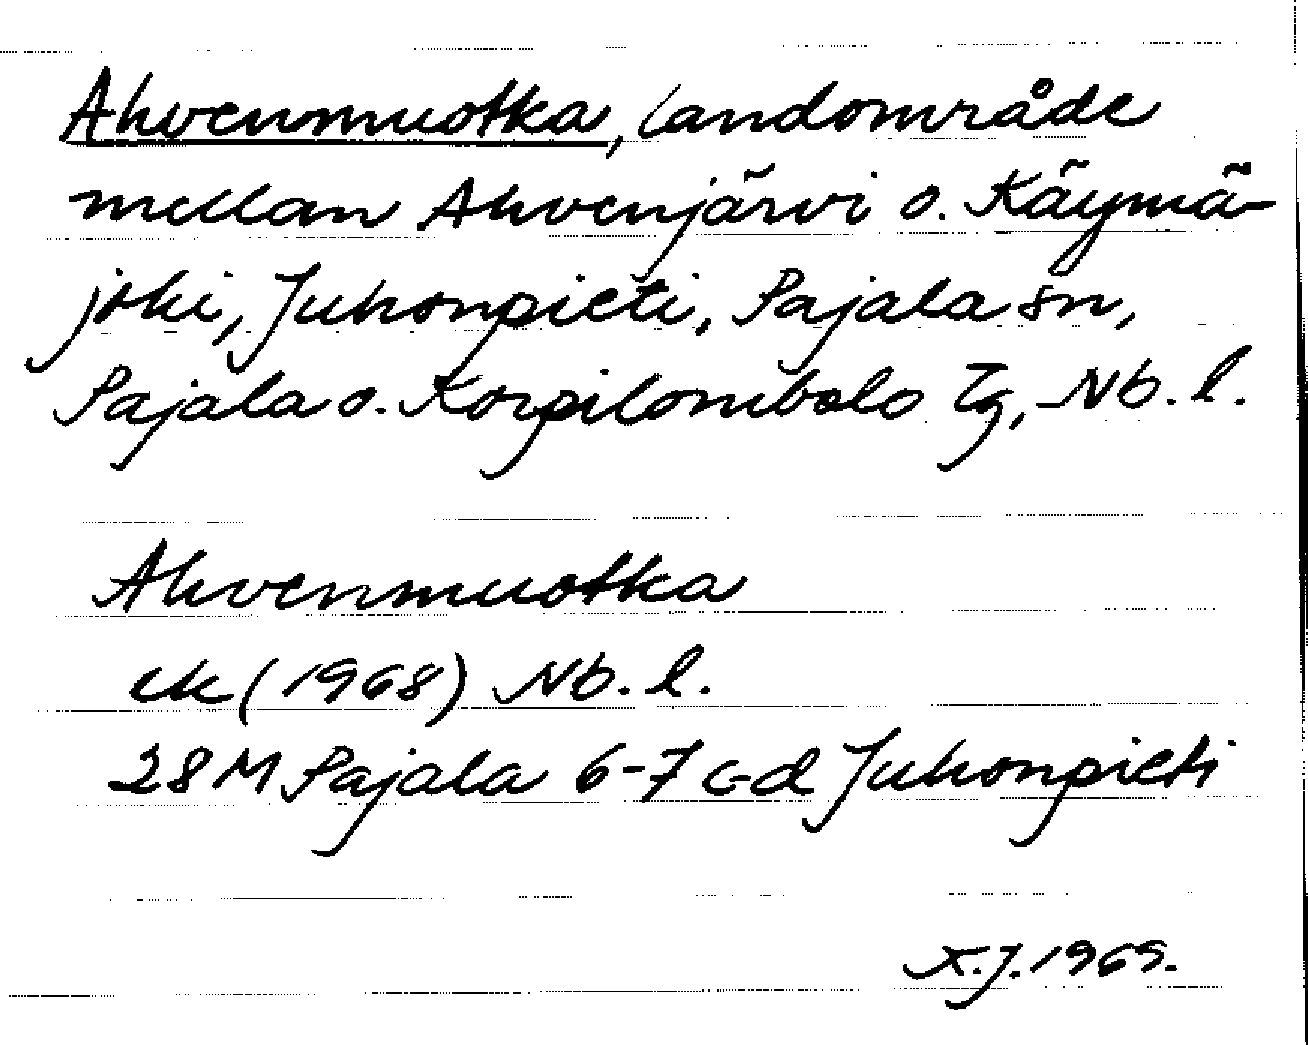 Ahvenmuotka, landområde
mellan Ahvenjärvi o. Käymä-
joki, Juhonpieti, Pajala sn,
Pajala o. Korpilombolo tg, Nb. l.
Ahvenmuotka
ek (1968) Nb. l.
28 M Pajala 6-7 c-d Juhonpieti
K.J. 1969.